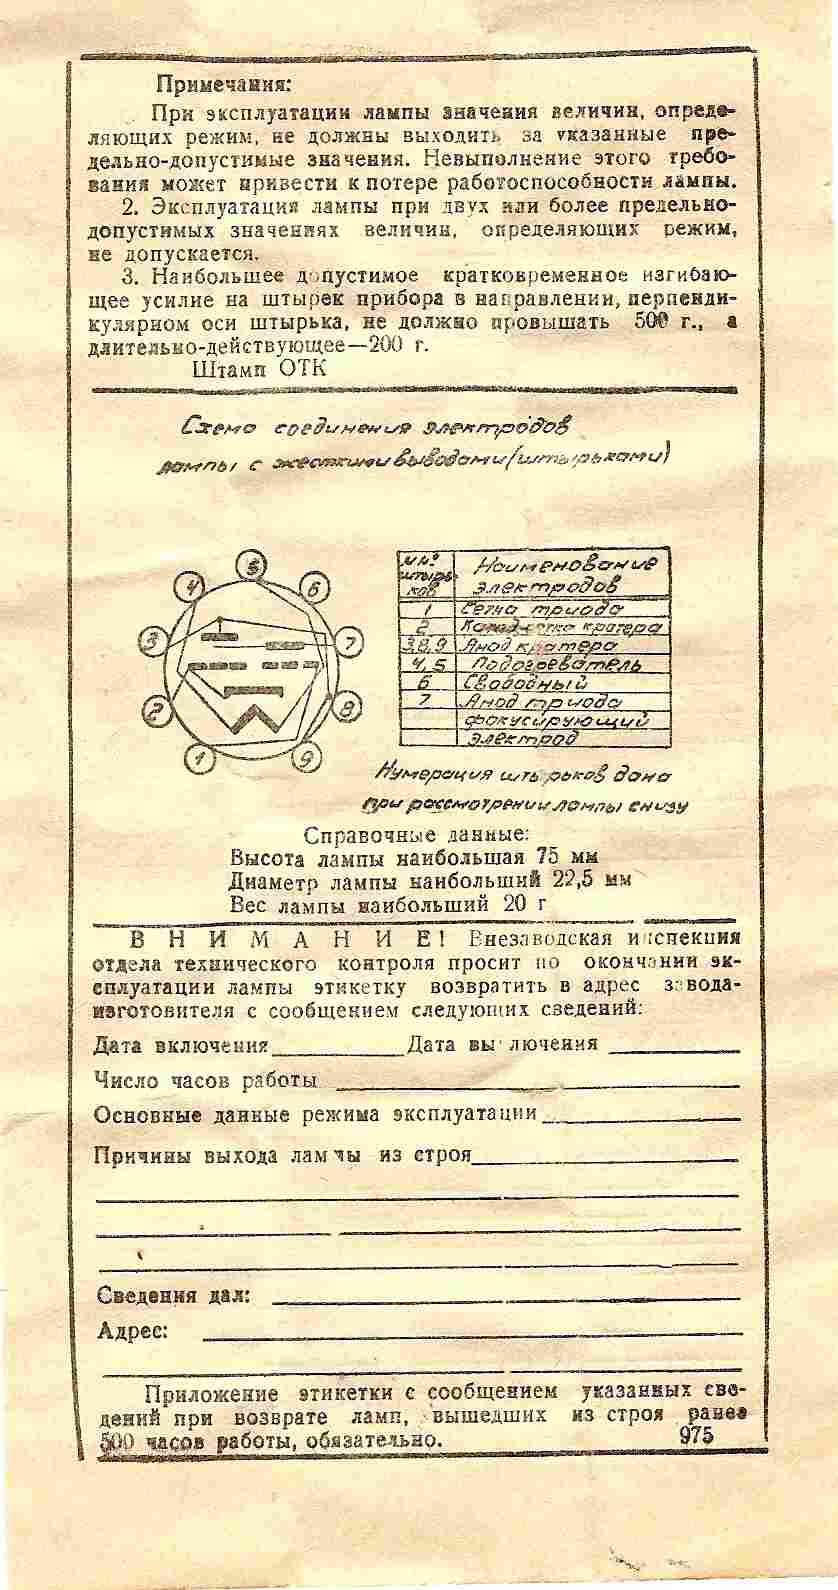 Примечания:
При эксплуатации лампы значения величин, опреде-
ляющих режим, не должны выходить за указанные пре-
дельно-допустимые значения. Невыполнение этого требо-
вания может привести к потере работоспособности лампы.
2. Эксплуатация лампы при двух или более предельно-
допустимых значениях величин, определяющих режим,
не допускается.
3. Наибольшее допустимое кратковременное изгибаю-
щее усилие на штырек прибора в направлении, перпенди-
кулярном оси штырька, не должно провышать 500 г., а
длительно-действующее—200 г.
Штамп ОТК
Схема соединения электродов
лампы с жесткими выводами (штырьками)
5
4 6
3 7
2 8
1 9
№№ штырь-ков Наименование электродов
1 Сетка триода
2 Катод-сетка кратера
3,8,9 Анод кратера
4,5 Подогреватель
6 Свободный
7 Анод триода
фокусирующий
электрод
Нумерация штырьков дана
при рассмотрении лампы снизу
Справочные данные:
Высота лампы наибольшая 75 мм
Диаметр лампы наибольший 22,5 мм
Вес лампы наибольший 20 г
В Н И М А Н И Е! Внезаводская инспекция
отдела технического контроля просит по окончании эк-
сплуатации лампы этикетку возвратить в адрес завода-
изготовителя с сообщением следующих сведений:
Дата включения Дата выключения
Число часов работы
Основные данные режима эксплуатации
Причины выхода лампы из строя
Сведения дал:
Адрес:
Приложение этикетки с сообщением указанных све-
дений при возврате ламп, вышедших из строя ранее
500 часов работы, обязательно. 975